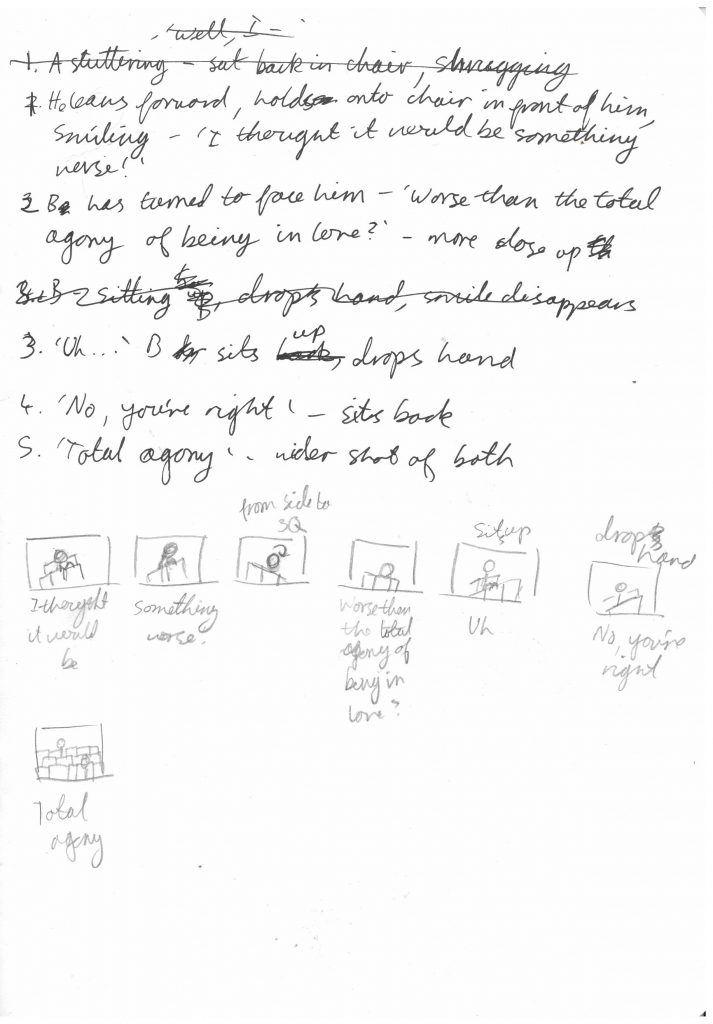 'well, I –'
1. A stuttering – sat back in chair, shrugging
1. He leans forward, holds onto chair in front of him,
smiling – 'I thought it would be something
worse!'
2 B has turned to face him – 'Worse than the total
agony of being in love?' – more close up
3. B – sitting, drops hand, smile disappears
3. 'Uh...' B sits back, up drops hand
4. 'No, you're right' – sits back
5. 'Total agony'.. wider shot of both
from side to
3Q
sits up
drops
hand
I thought
it would
be
something
worse.
Worse than
the total
agony of
being in
love?
Uh
No, you're
right
Total
agony